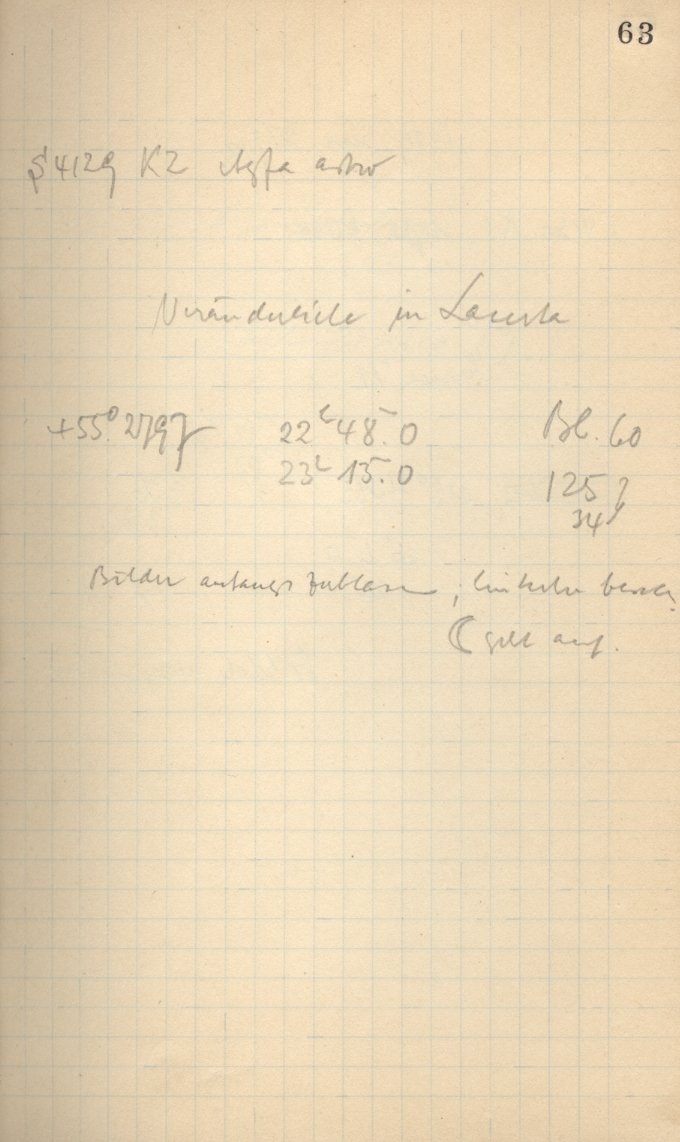 63
S 4129 K2 Agfa astro
Veränderliche in Lacerta
+55° 2797 22h 48.0 Bl. 60
23h 15.0 125
34
Bilder anfangs zerblasen, hinterher besser
☾ geht auf.